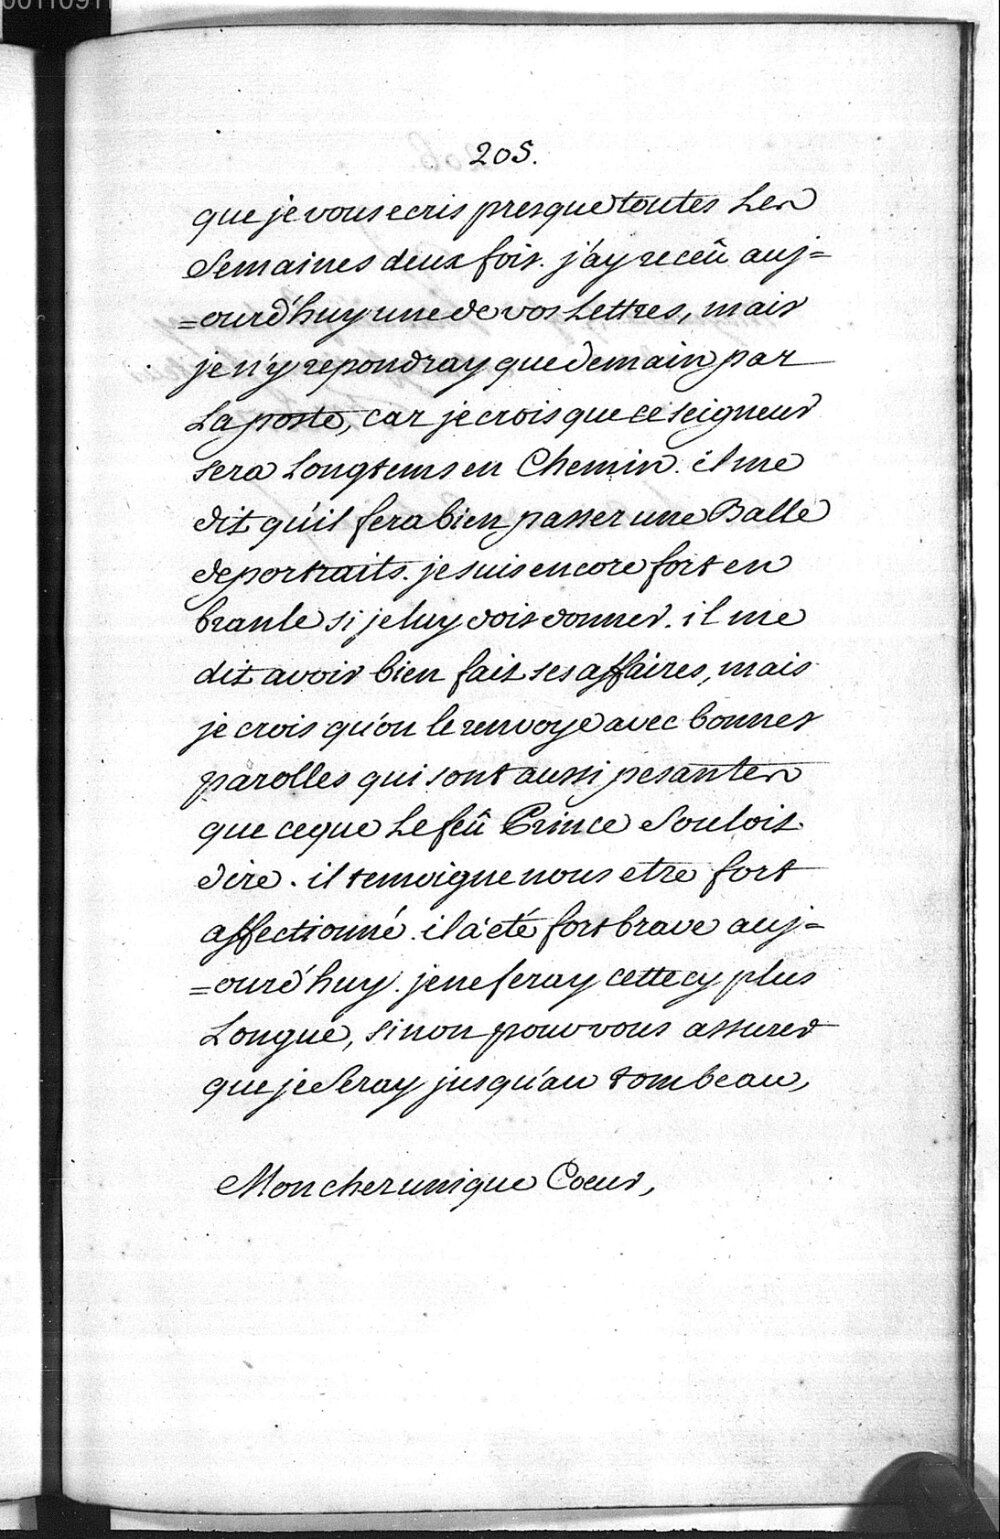 205.
que je vous ecris presque toutes Les
Semaines deux fois. j'ay receû auj=
=ourd'huy une de vos Lettres, mais
je n'y repondray que demain par
La poste, car je crois que ce seigneur
sera Longtems en Chemin. il me
dit qu'il fera bien passer une Balle
de portraits. je suis encore fort en
branle si je luy dois donner. il me
dit avoir bien fait ses affaires, mais
je crois qu'on le renvoye avec bonnes
parolles qui sont aussi pesantes
que ce que Le feû Prince Souloit
dire. il temoigne nous etre fort
affectionné. il à eté fort brave auj=
=ourd'huy. je ne feray cette cy plus
Longue, sinon pour vous assurer
que je Seray jusqu'au tombeau,
Mon cher unique Coeur,